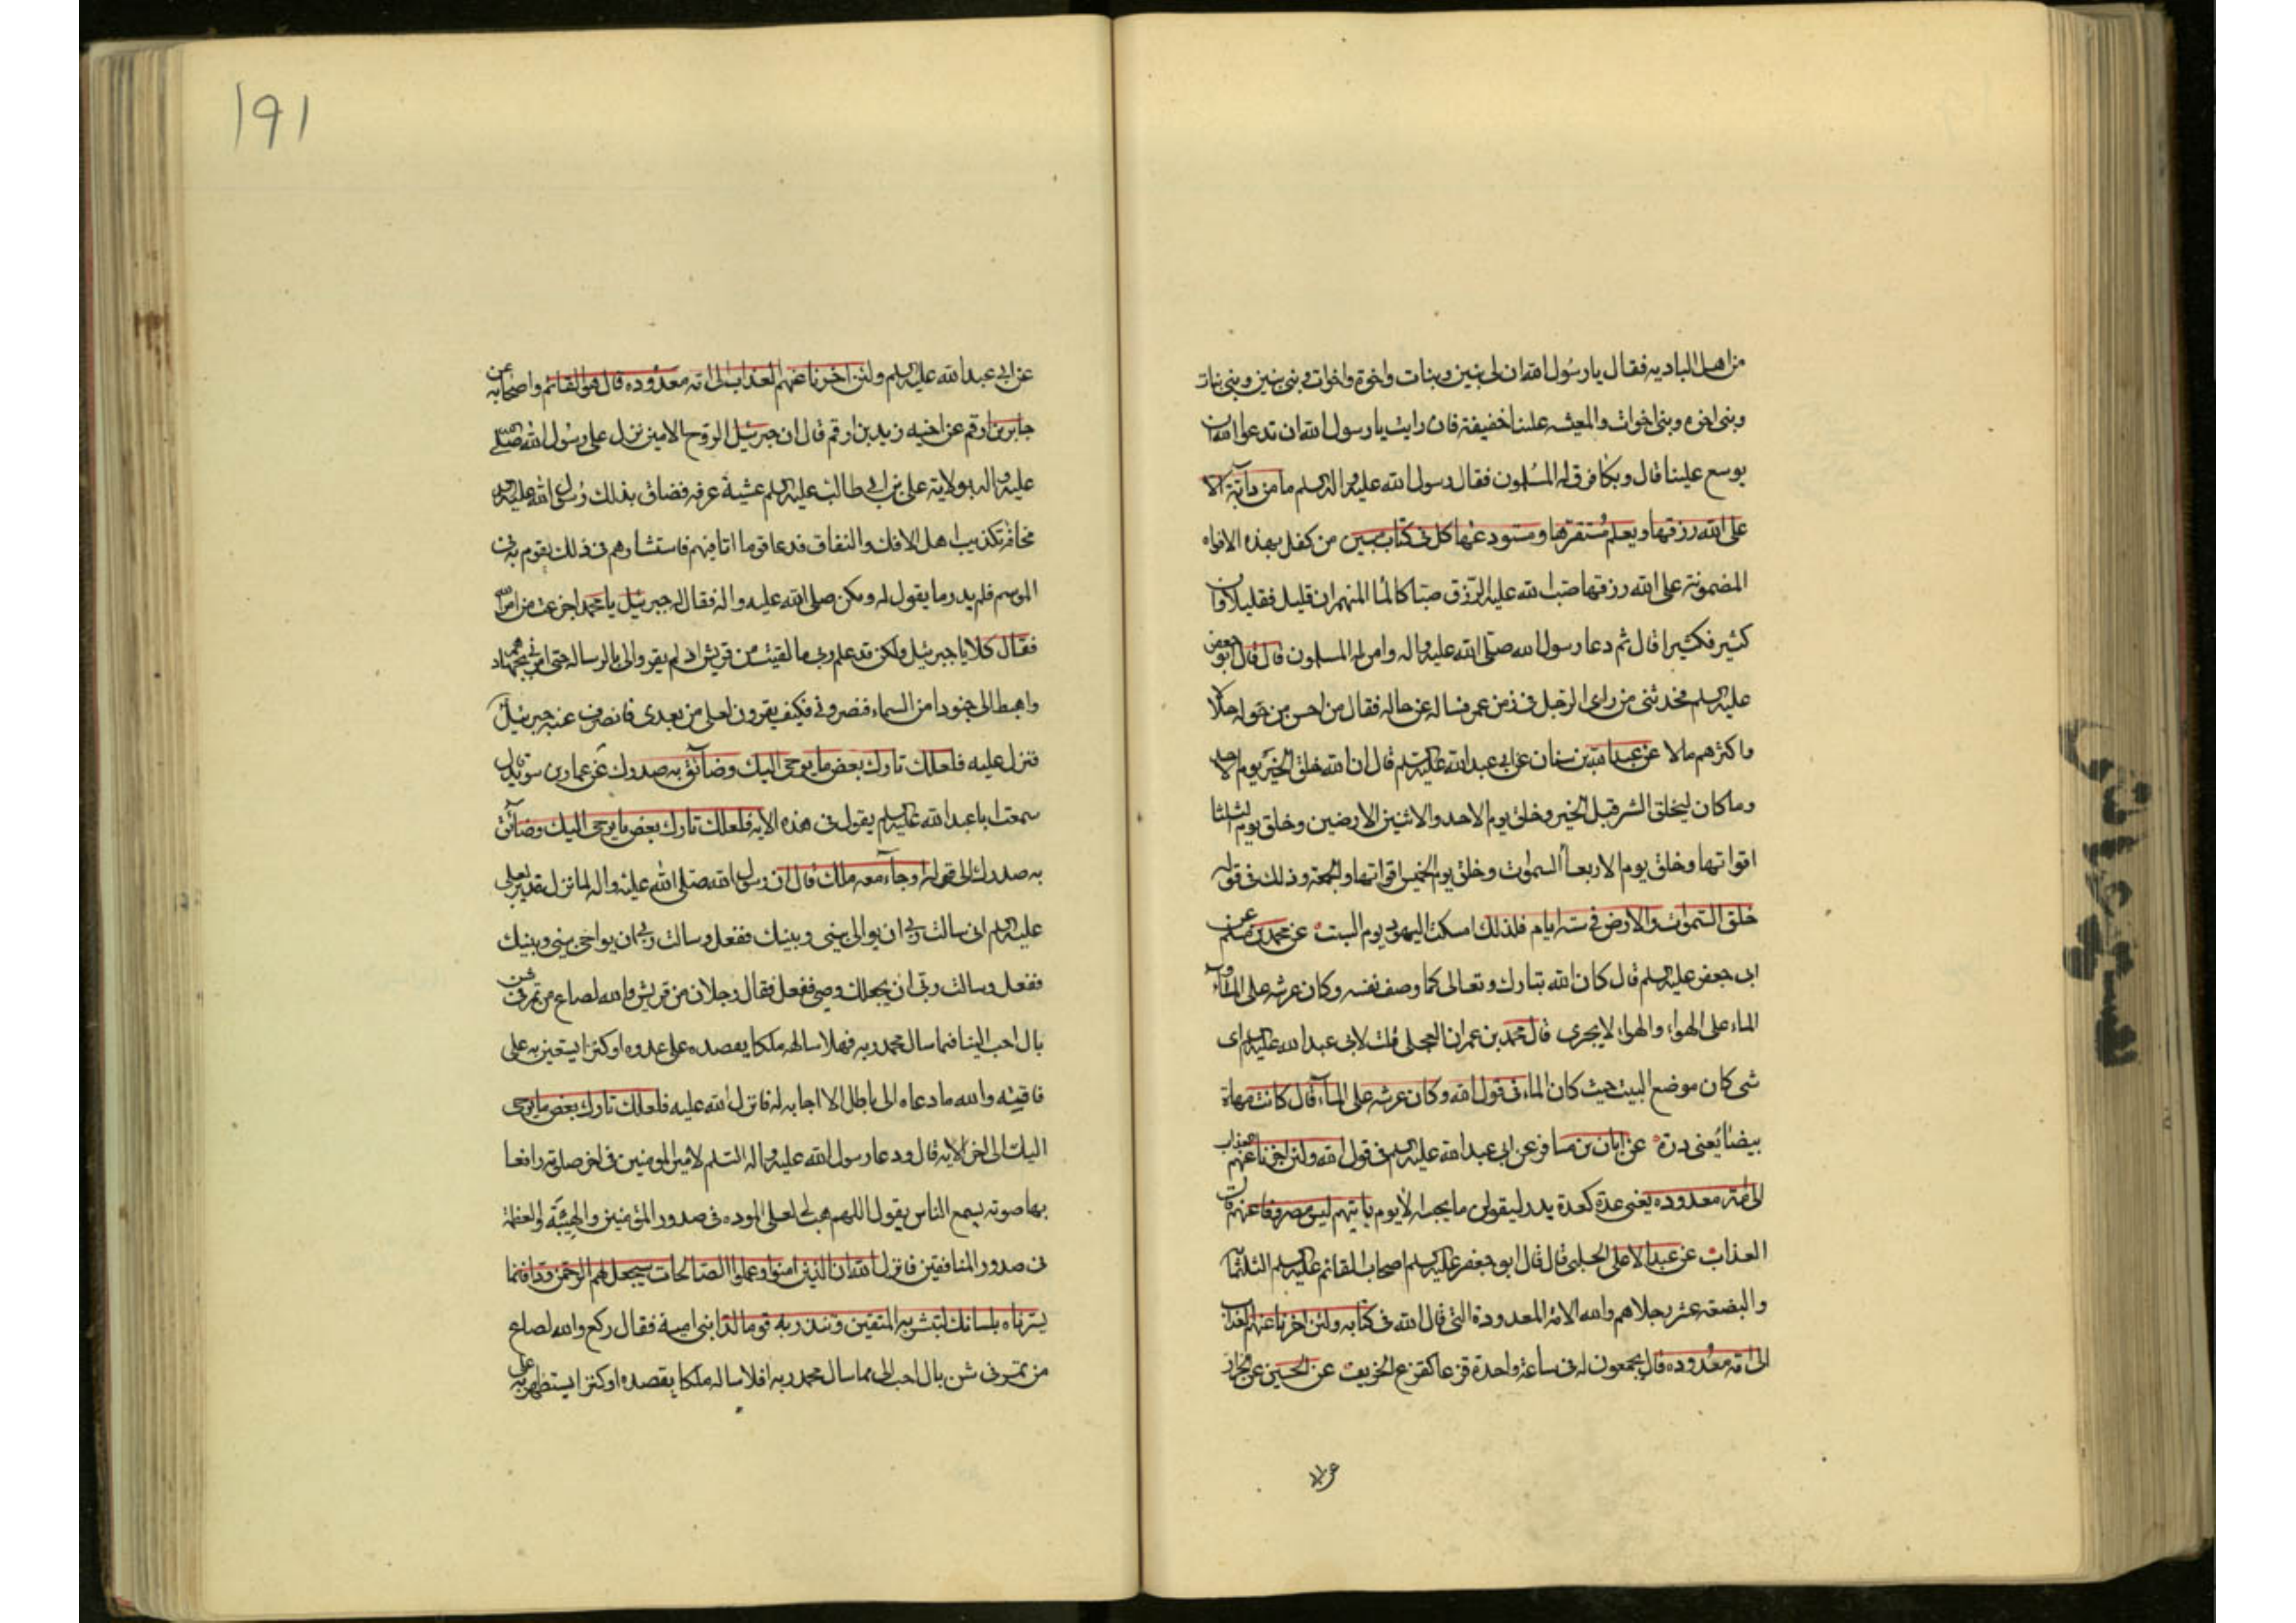 من اهل الباديه فقال يا رسول الله ان لى بنين وبنات واخوة واخوات وبنى بنين وبنى بنات
وبنى اخوه وبنى اخوات والمعيشه علينا خفيفة فان رايت يا رسول الله ان تدعوا الله ان
يوسع علينا قال وبكا فرق له المسلمون فقال رسول الله عليه واله السلم ما من دآبة الا
على الله رزقها ويعلم مستقرها ومستودعها كل فى كتاب مبين من كفل بهذه الافواه
المضمونة على الله رزقها صب الله عليه الرزق صبا كالما المنهمر ان قليل فقليلا وان
كثير فكثيرا قال ثم دعا رسول الله صلى الله عليه واله وامن له المسلمون قال قال ابو جعفر
عليه السلم فحدثنى من راى الرجل فى زمن عمر فساله عن حاله فقال من احسن من خوله حلالا
واكثرهم مالا عن عبد الله بن سنان عن ابى عبد الله عليه السلم قال ان الله خلق الخير يوم الاحد
وما كان ليخلق الشر قبل الخير وخلق يوم الاحد والاثنين الارضين وخلق يوم الثلثا
اقواتها وخلق يوم الاربعا السموات وخلق يوم الخميس اقواتها والجمعة وذلك فى قوله
خلق السموات والارض فى ستة ايام فلذلك امسكت اليهود يوم السبت عن محمد بن مسلم عن
ابى جعفر عليه السلم قال كان الله تبارك وتعالى كما وصف نفسه وكان عرشه على الماء و
الماء على الهواء والهواء لا يجرى قال محمد بن عمران العجلى قلت لابى عبد الله عليه السلم اى
شى كان موضع البيت حيث كان الماء فى قول الله وكان عرشه على المآء قال كانت مهاة
بيضا يعنى درة عن ابان بن مسافر عن ابى عبد الله عليه السلم فى قول الله ولئن اخرنا عنهم العذاب
الى امة معدوده يعنى عدة كعدة بدر ليقولن ما يحبسه الا يوم ياتيهم ليس مصروفا عنهم قال
العذاب عن عبد الاعلى الحلبى قال قال ابو جعفر عليه السلم اصحاب القائم عليه السلم الثلثمآ
والبضعه عشر رجلا هم والله الامة المعدودة التى قال الله فى كتابه ولئن اخرنا عنهم العذاب
الى امة معدوده قال يجمعون له فى ساعة واحدة قزعا كقزع الخريف عن الحسين عن الخزاز
عن ابى
١٩١
عن ابى عبد الله عليه السلم ولئن اخرنا عنهم العذاب الى امة معدوده قال هو القائم واصحابه عن
جابر بن ارقم عن اخيه زيد بن ارقم قال ان جبرئيل الروح الامين نزل على رسول الله صلى الله
عليه واله بولاية على بن ابى طالب عليه السلم عشية عرفه فضاق بذلك رسول الله عليه واله
مخافة تكذيب اهل الافك والنفاق فدعا قوما انا فيهم فاستشارهم فى ذلك ليقوم به فى
الموسم فلم يدر ما يقول له وبكى صلى الله عليه واله فقال له جبرئيل يا محمد اجزعت من امر الله
فقال كلا يا جبرئيل ولكن قد علم ربى ما لقيت من قريش اذ لم يقروا لى بالرسالة حتى امرنى بجهادهم
واهبط الى جنودا من السماء فنصرونى فكيف يقرون لعلى من بعدى فانصرف عنه جبرئيل
فنزل عليه فلعلك تارك بعض ما يوحى اليك وضآئق به صدرك عن عمار بن سويد قال
سمعت ابا عبد الله عليه السلم يقول فى هذه الايه فلعلك تارك بعض ما يوحى اليك وضآئق
به صدرك الى قوله او جآء معه ملك قال ان رسول الله صلى الله عليه واله لما نزل بقديد قال لعلى
عليه السلم انى سالت ربى ان يوالى بينى وبينك ففعل وسالت ربى ان يواخى بينى وبينك
ففعل وسالت ربى ان يجعلك وصى ففعل فقال رجلان من قريش والله لصاع من تمر فى شن
بال احب الينا فيما سال محمد ربه فهلا ساله ملكا يعضده على عدوه او كنزا يستعين به على
فاقته والله ما دعاه الى باطل الا اجابه له فانزل الله عليه فلعلك تارك بعض ما يوحى
اليك الى اخر الايه قال ودعا رسول الله عليه واله السلم لامير المومنين فى اخر صلوته رافعا
بها صوته يسمع الناس يقول اللهم هب لعلى الموده فى صدور المؤمنين والهيبة والعظمة
فى صدور المنافقين فانزل الله ان الذين امنوا وعملوا الصالحات سيجعل لهم الرحمن ودا فانما
يسرناه بلسانك لتبشر به المتقين وتنذر به قوما لدا بنى امية فقال ركع والله لصاع
من تمر فى شن بال احب الى مما سال محمد ربه افلا ساله ملكا يعضده او كنزا يستظهر به على